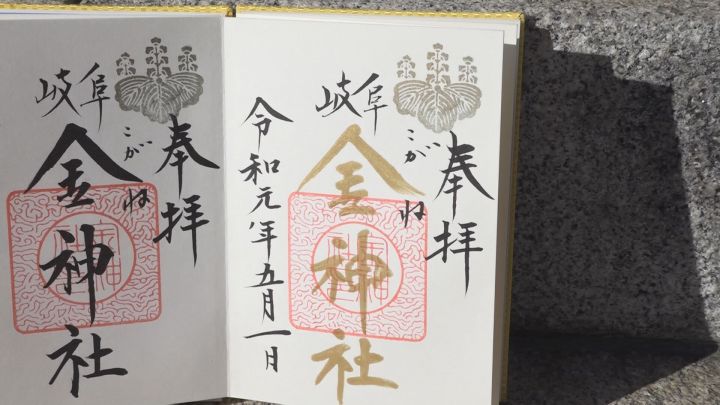 奉拝
岐阜
こがね
金神社
令和元年五月一日
奉拝
岐阜
こがね
金神社